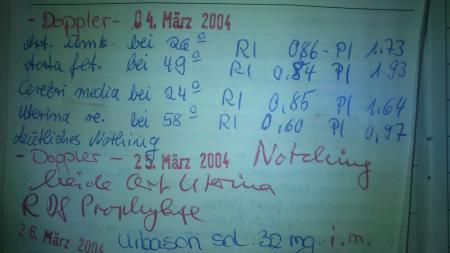 - Doppler - 04. März 2004
Art. umb. bei 26° RI 086 - PI 1.73
Aorta fet. bei 49° RI 0,84 PI 1.93
Cerebri media bei 24° RI 0,85 PI 1.64
Uterina re. bei 58° RI 0,60 PI 0,97
deutliches Nothing
- Doppler - 25. März 2004 Notching
beide Art Uterina
RDS Prophylaxe
26. März 2004 Urbason sol. 32 mg i.m.